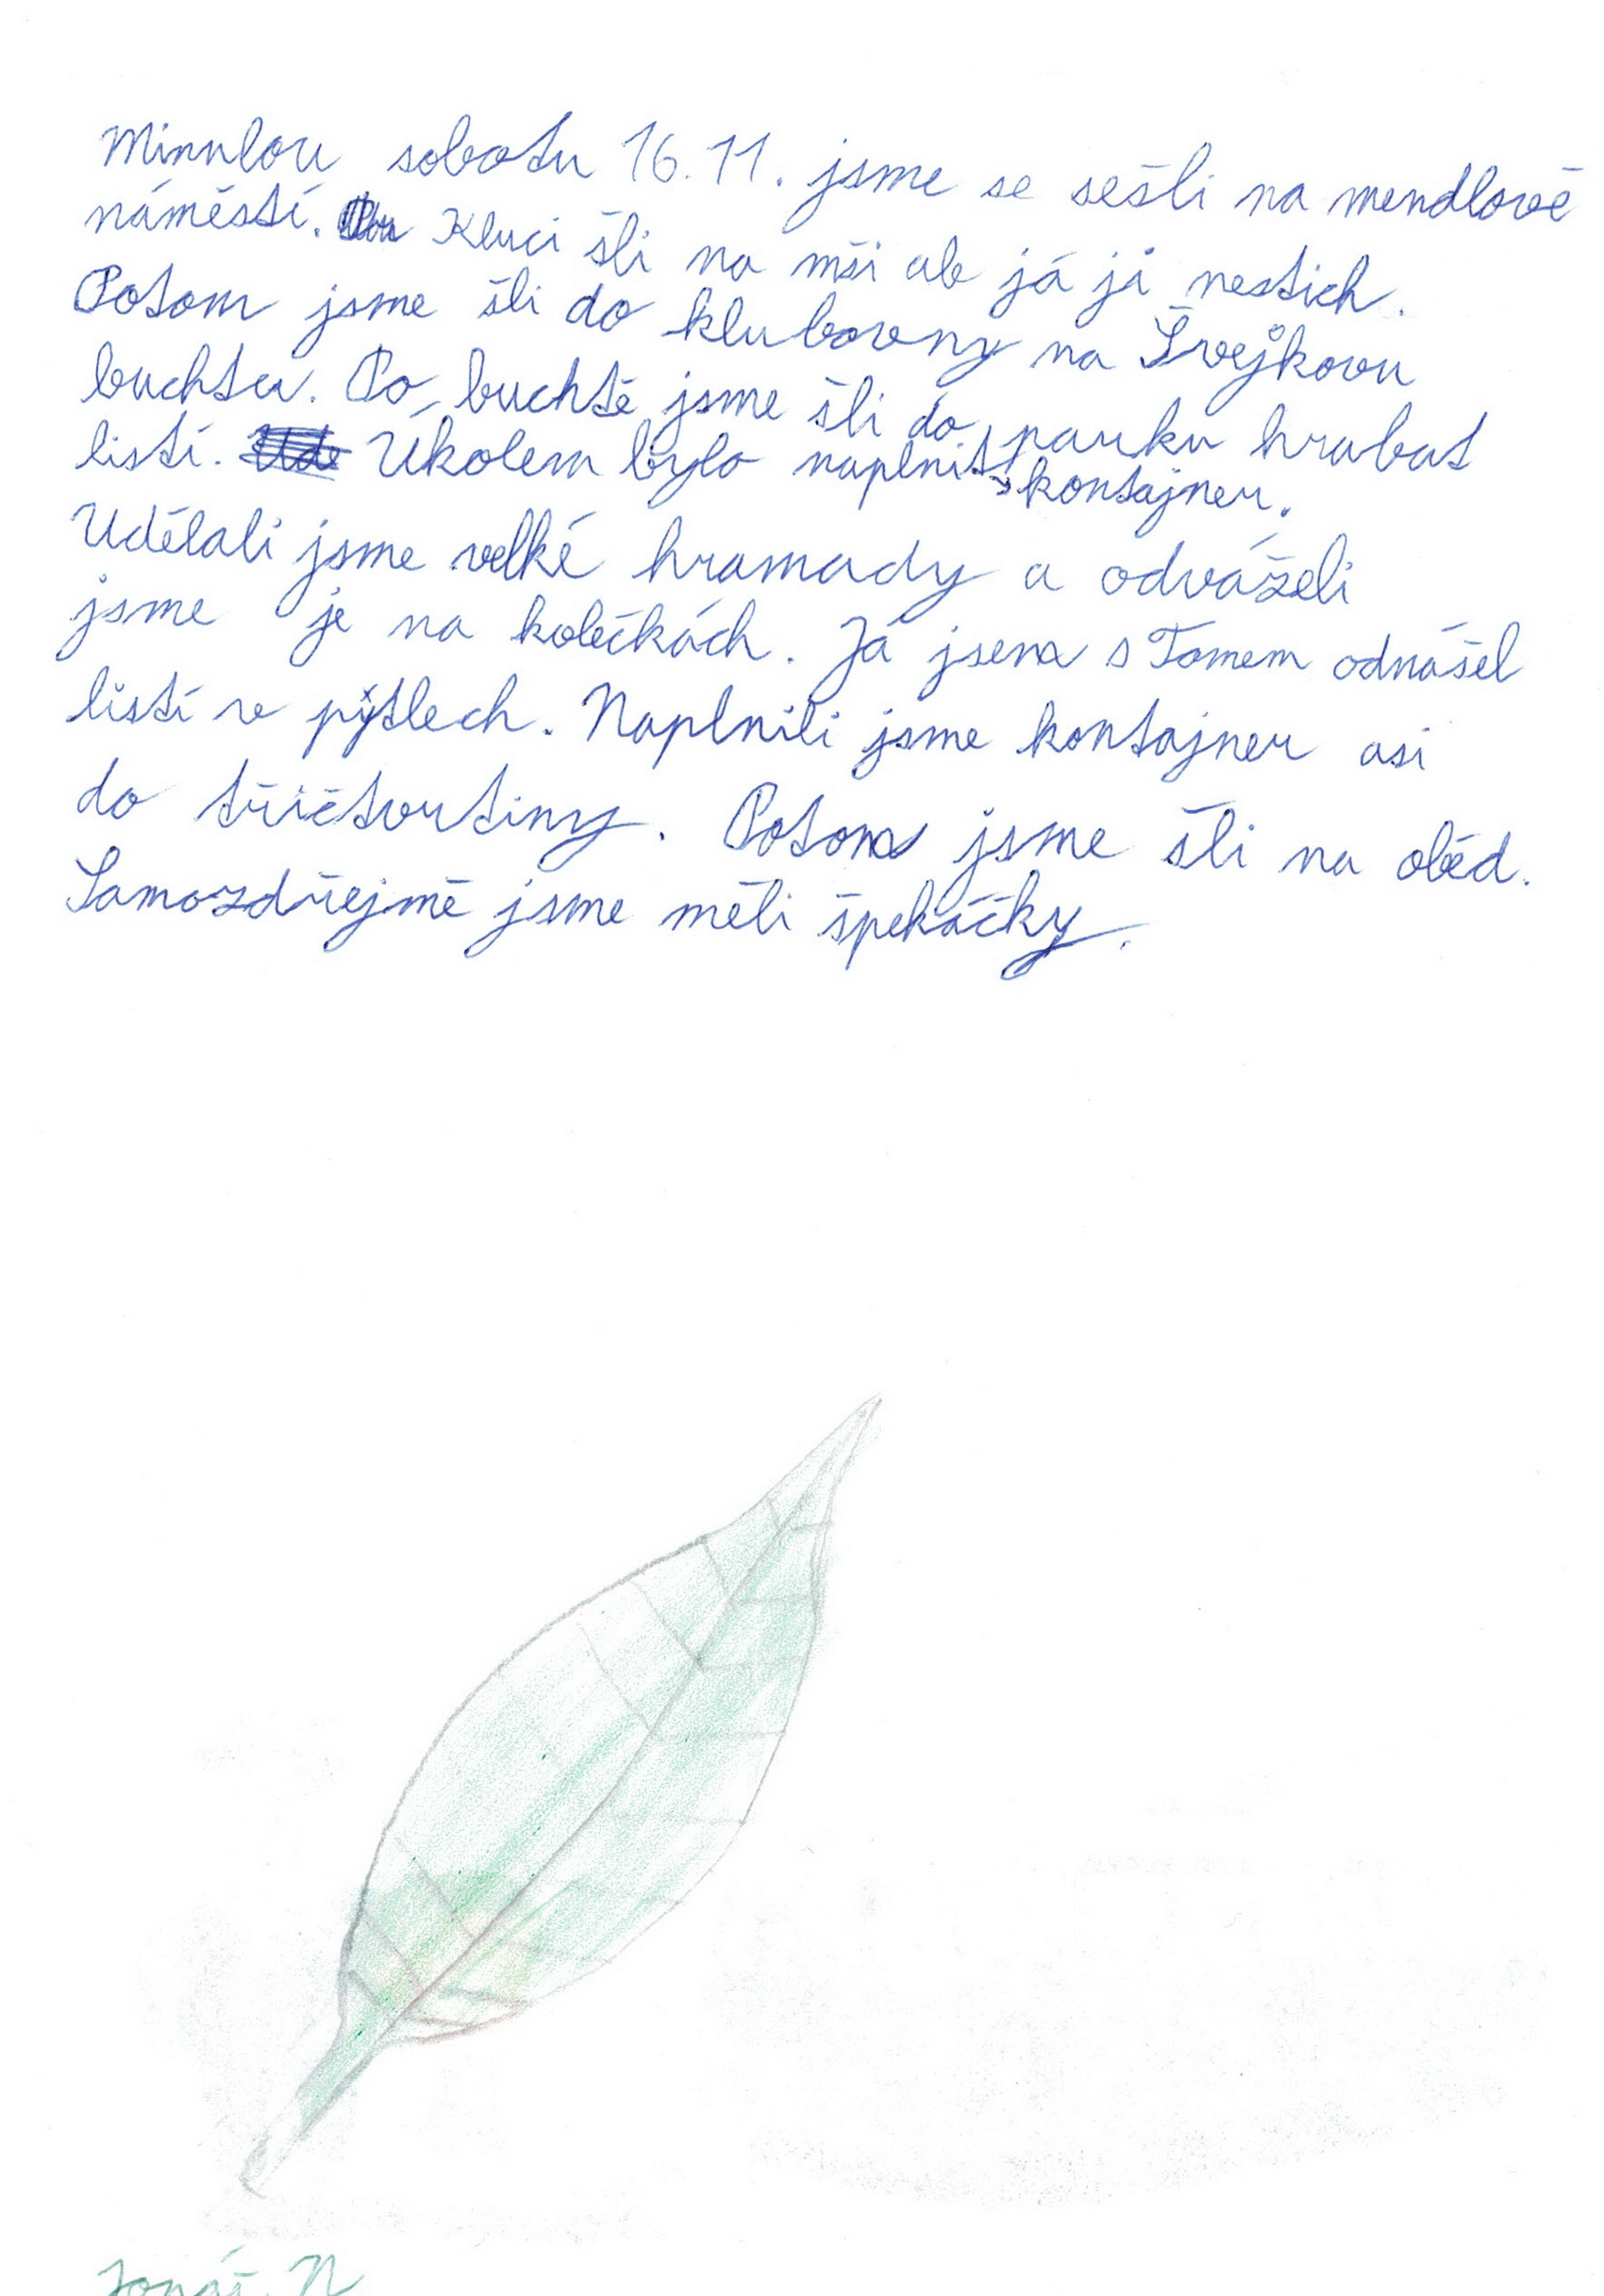 Minulou sobotu 16.11. jsme se sešli na mendlově
náměstí. Kluci šli na mši ale já ji nestich.
Potom jsme šli do klubovny na Švejkovu
buchtu. Po buchtě jsme šli do parku hrabat
listí. Úkolem bylo naplnit kontajner.
Udělali jsme velké hramady a odváželi
jsme je na kolečkách. Já jsem s Tomem odnášel
listí v pytlech. Naplnili jsme kontajner asi
do tříčtvrtiny. Potom jsme šli na oběd.
Samozdřejmě jsme měli špekáčky.
Jonáš N